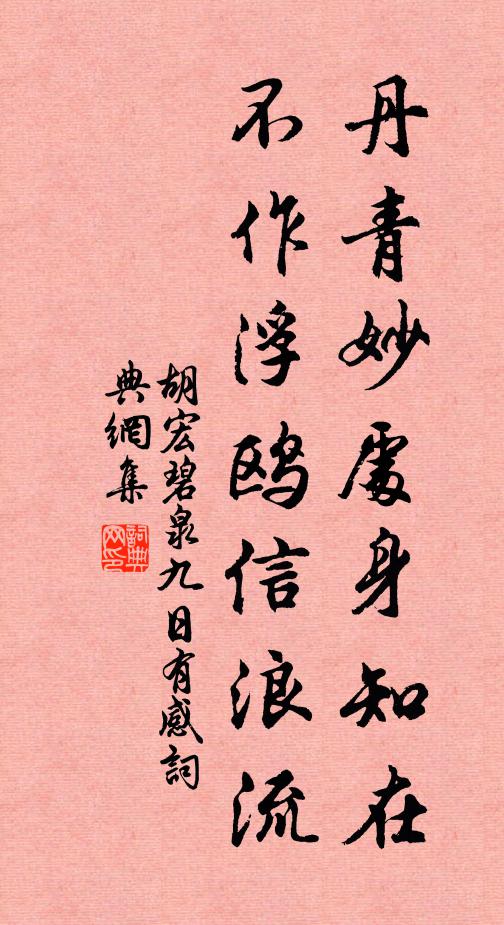 丹青妙處身知在
不作浮鷗信浪流
胡宏碧泉九日有感詞
典網集
詞典
网印